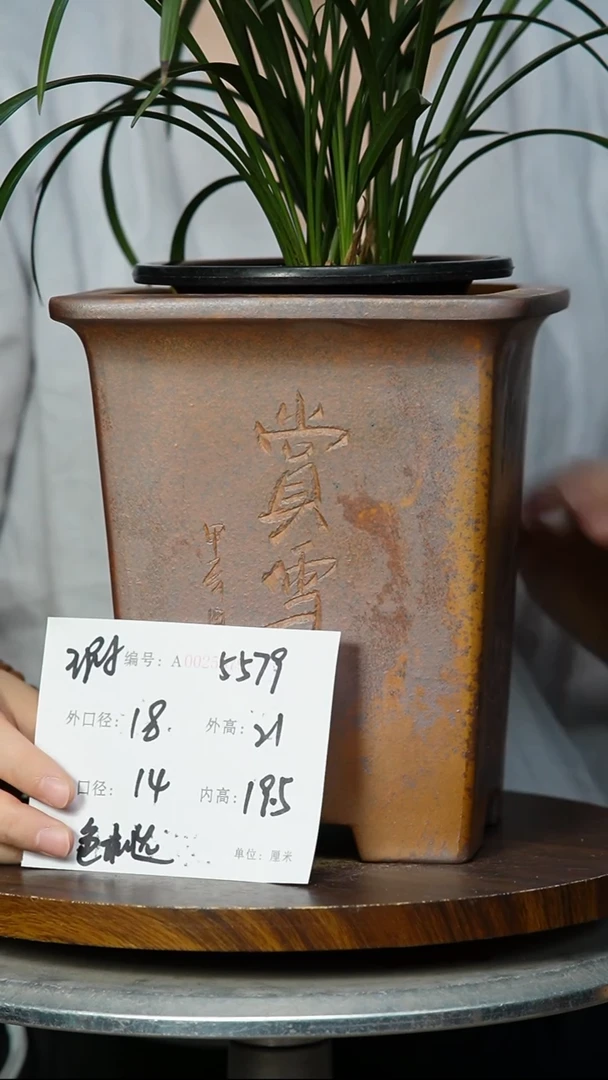 賞雪
编号: A0025 5579
外口径: 18. 外高: 21
口径: 14 内高: 19.5
单位: 厘米